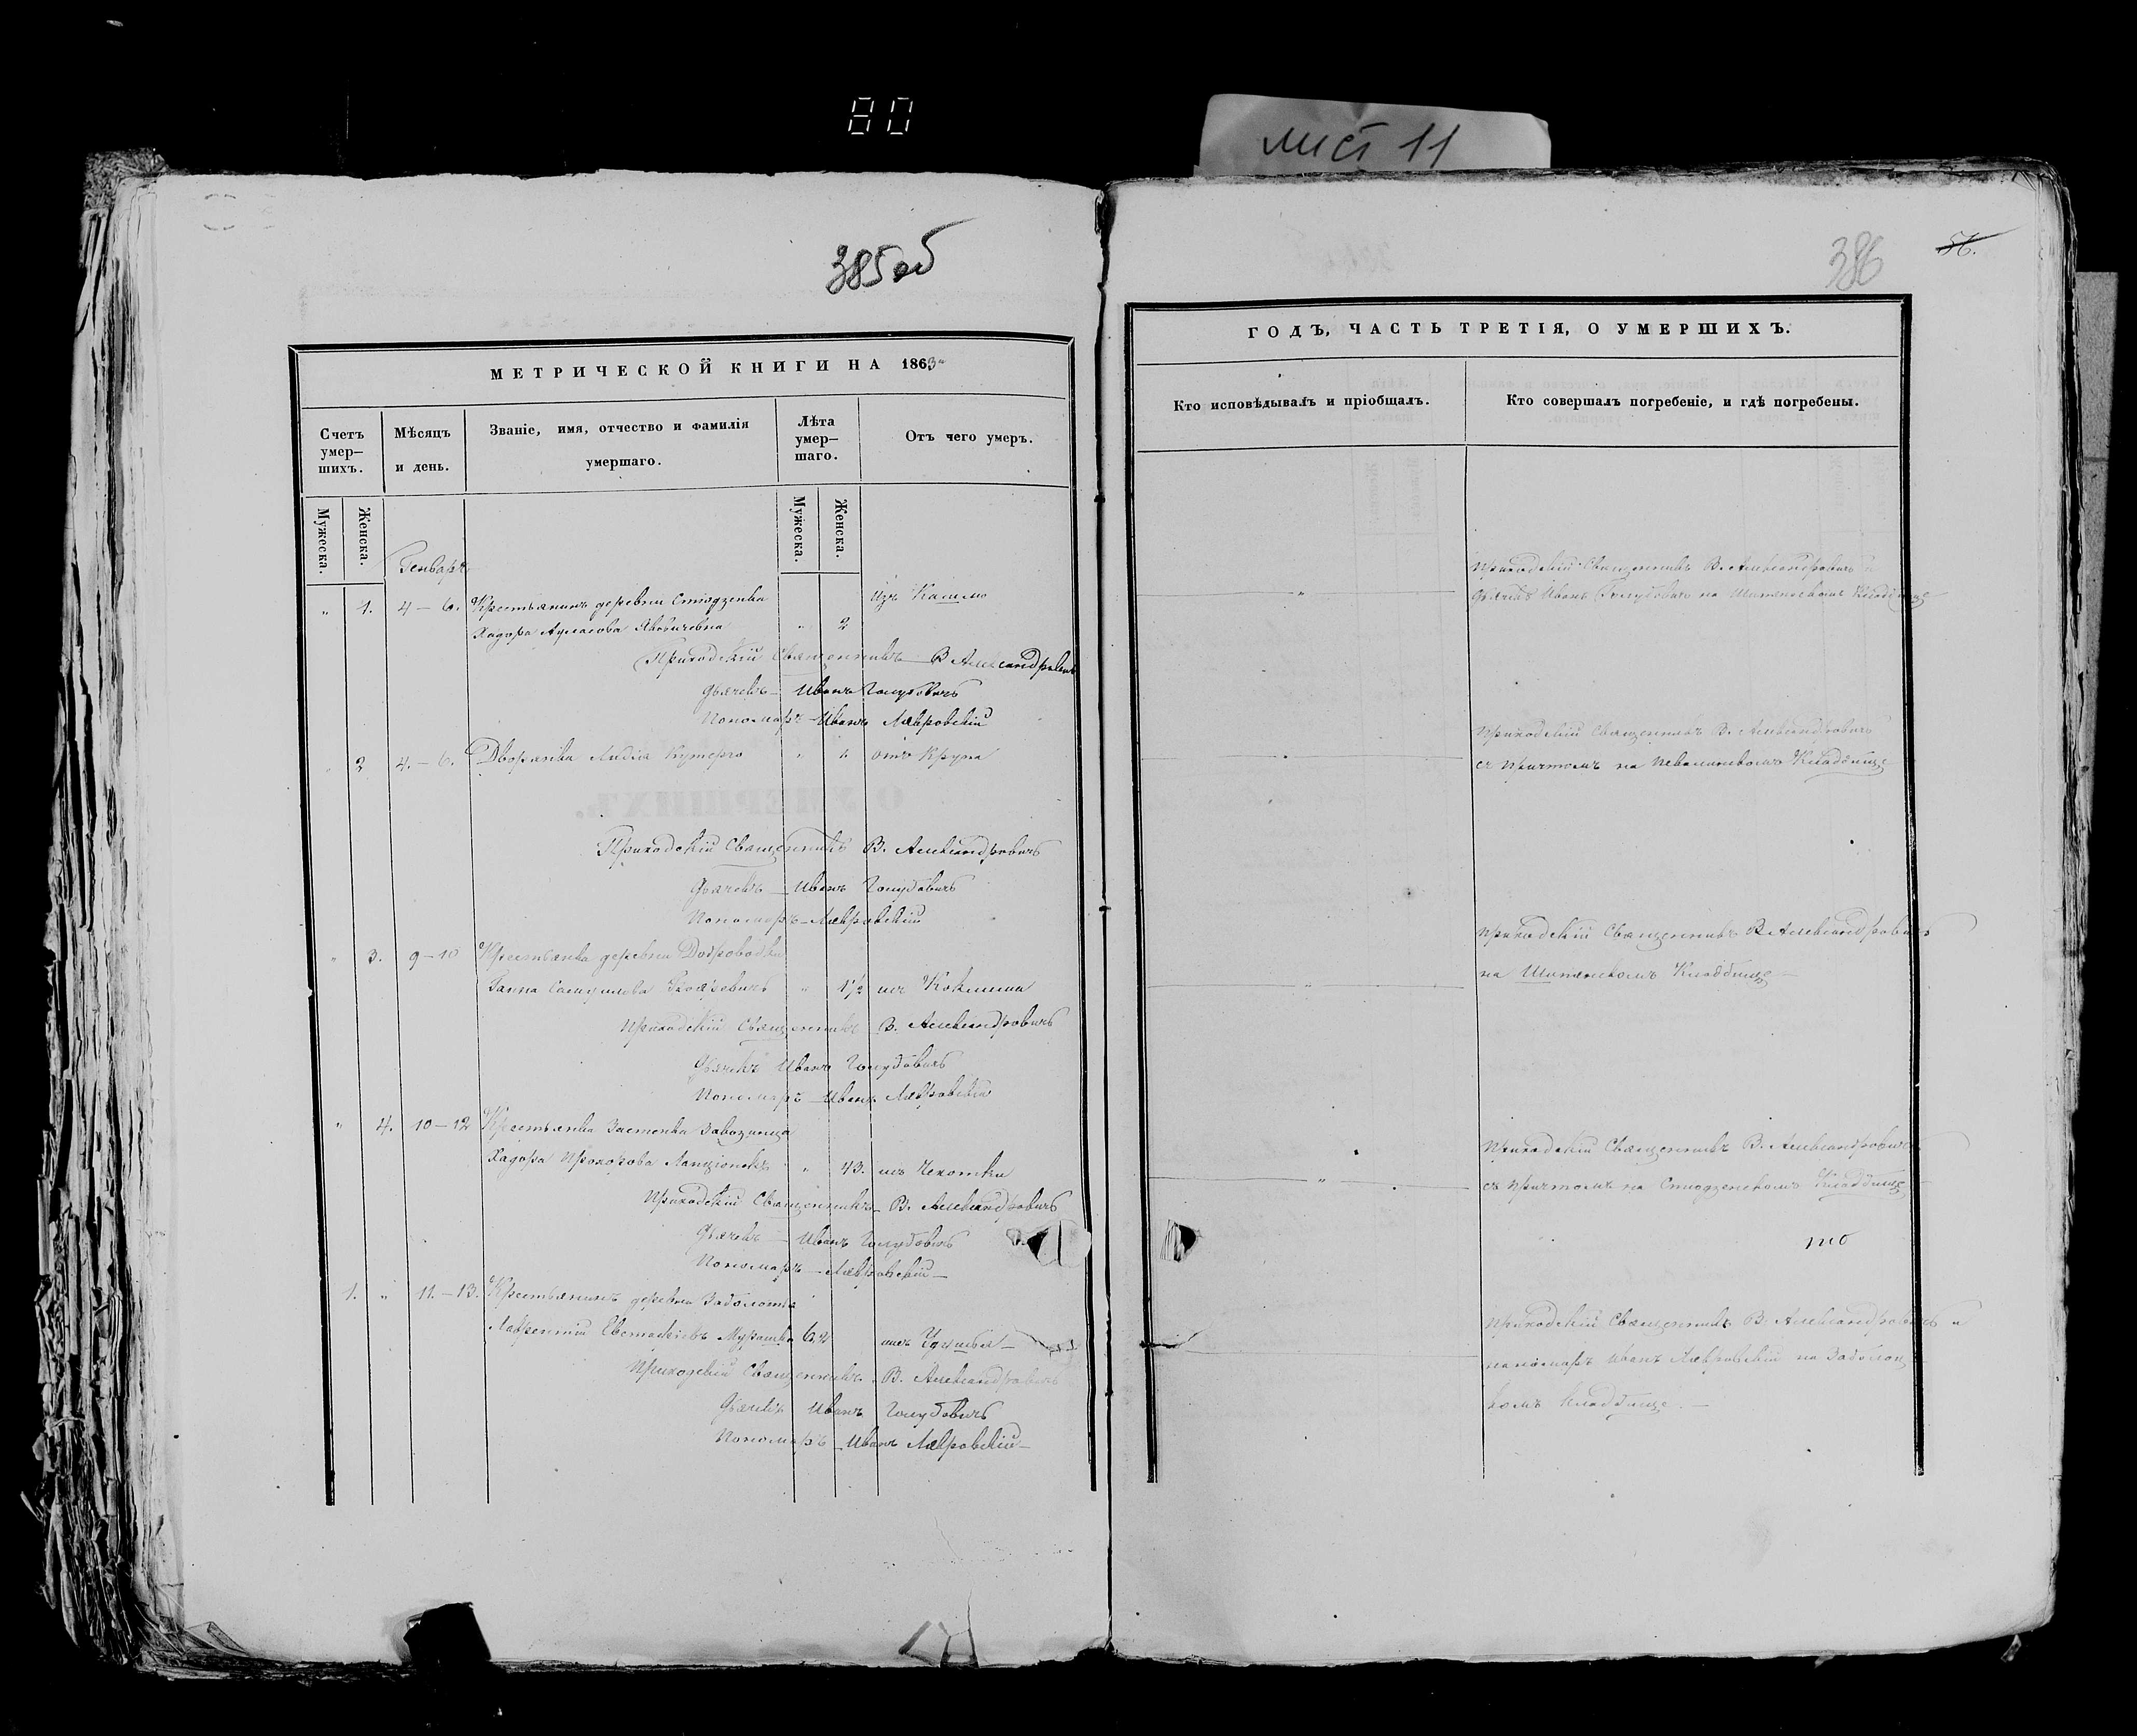 80
лист 11
385об
МЕТРИЧЕСКОЙ КНИГИ НА 1863
Счетъ умер-шихъ.
Мѣсяцъ и день.
Званіе, имя, отчество и фамилія умершаго.
Лѣта умер-шаго.
Отъ чего умеръ.
Мужеска.
Женска.
Мужеска.
Женска.
Генварь
" 1. 4 – 6. Крестьянинъ деревни Стюдзенка изъ Кашлю
Хадора " 2
Приходскій Священникъ В Александровичъ
Дьячекъ – Иванъ Голубовичъ
Пономарь – Иванъ Лавровскій
" 2 4. – 6. Дворянка Лидія Кутерго " отъ Крупа
Приходскій Священникъ В. Александровичъ
Дьячекъ – Иванъ Голубовичъ
Пономарь – Лавровскій
" 3. 9 – 10 Крестьянка деревни Доброводки
Ганна Самуилова " 1½ изъ Коклюша
Приходскій Священникъ В. Александровичъ
Дьячекъ Иванъ Голубовичъ
Пономарь – Иванъ Лавровскій
" 4. 10 – 12 Крестьянка Застенка
Хадора Прохорова " 43. изъ Чехотки
Приходскій Священникъ – В. Александровичъ
Дьячекъ – Иванъ Голубовичъ
Пономарь – Лавровскій –
1. " 11. – 13. Крестьянинъ деревни Заболотья
Лаврентій Евстафіевъ Мурашко
Приходскій Священникъ В. Александровичъ
Дьячекъ Иванъ Голубовичъ
Пономарь – Иванъ Лавровскій –
386
56.
ГОДЪ, ЧАСТЬ ТРЕТІЯ, О УМЕРШИХЪ.
Кто исповѣдывалъ и пріобщалъ.
Кто совершалъ погребеніе, и гдѣ погребены.
Приходскій Священникъ В. Александровичъ и
Дьячекъ Иванъ Голубовичъ на Кладбище
Приходскій Священникъ В. Александровичъ
съ Причтомъ на Кладбище
Приходскій Священникъ В Александровичъ
на Кладбище –
Приходскій Священникъ В. Александровичъ
съ Причтомъ на Стюдзенскомъ Кладбище
Приходскій Священникъ В. Александровичъ и
пономарь Иванъ Лавровскій на Заболоц
комъ Кладбище. –